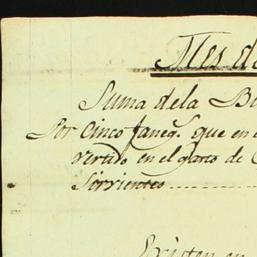 Mes de
Suma dela Bu
Por Cinco faneg.s que en e
vertido en el gasto de C
Sirvientes
Existen en